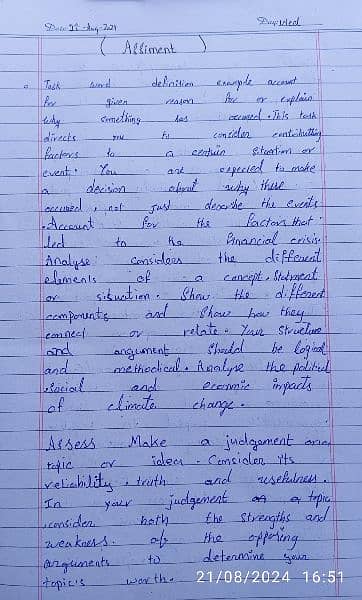 Day: Wed
( Assiment )
Task word definition example account
for given reason for or explain
why something has occured. This task
directs you to consider contributing
factors to a certain situation or
event. You are expected to make
a decision about why these
occured, not just describe the events
. Account for the factors that
led to the financial crisis.
Analyse considers the different
elements of a concept. Statment
or situation. Show the different
components and show how they
connect or relate. Your structure
and argument should be logical
and methodical. Analyse the political
social and economic impacts
of climate change.
Assess Make a judgement
topic or idea. Consider its
reliability, truth and usefulness.
In your judgement a topic
consider both the strengths and
weakness. of the opposing
arguments to determine your
topic's worth.
21/08/2024 16:51